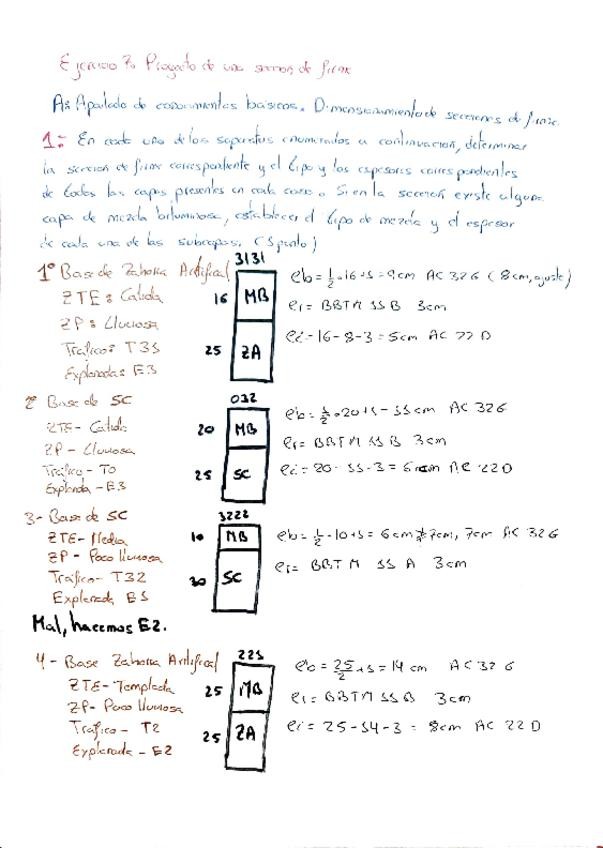 Ejercicio 7. Proyecto de una seccion de firme
A: Apartado de conocimientos básicos. Dimensionamiento de secciones de firme.
1.- En cada uno de los supuestos enumerados a continuacion, determinar
la seccion de firme correspondiente y el tipo y los espesores correspondientes
de todas las capas presentes en cada caso. Si en la seccion existe alguna
capa de mezcla bituminosa, establecer el tipo de mezcla y el espesor
de cada una de las subcapas. (1 punto)
1º Base de Zahorra Artificial
ZTE: Calida
ZP: Lluviosa
Trafico: T31
Explanada: E3
3131
16 MB
25 ZA
eb = 1/2 · 16 + 1 = 9cm AC 32 G (8cm, ajuste)
er = BBTM 11 B 3cm
ei = 16-8-3 = 5cm AC 22 D
2º Base de SC
ZTE - Calida
ZP - Lluviosa
Trafico - T0
Explanada - E3
032
20 MB
25 SC
eb = 1/2 · 20 + 1 = 11cm AC 32 G
er = BBTM 11 B 3cm
ei = 20-11-3 = 6cm AC 22 D
3- Base de SC
ZTE - Media
ZP - Poco lluviosa
Trafico - T32
Explanada E1
Mal, hacemos E2.
3222
10 MB
30 SC
eb = 1/2 · 10 + 1 = 6cm ≠ 7cm, 7cm AC 32 G
er = BBTM 11 A 3cm
4- Base Zahorra Artificial
ZTE - Templada
ZP - Poco lluviosa
Trafico - T2
Explanada - E2
221
25 MB
25 ZA
eb = 25/2 + 1 = 14cm AC 32 G
er = BBTM 11 B 3cm
ei = 25-14-3 = 8cm AC 22 D